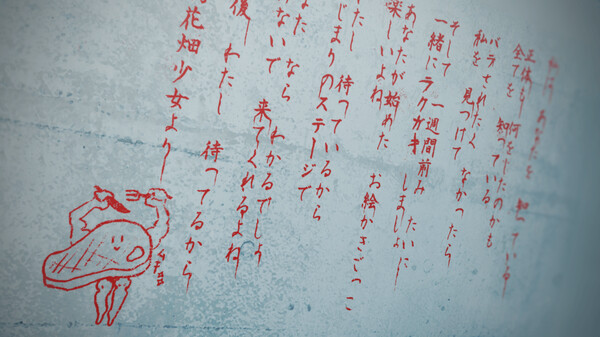 私は あなたを 知っている
正体も 何をしたのかも
全てを 知っている
バラされたく なかったら
私を 見つけて
そして 一週間前みたいに
一緒にラクガキ しましょ
あなたが始めた お絵かきごっこ
楽しいよね
たし 待っているから
じまりのステージで
なた なら わかるでしょう
ないで 来てくれるよね
後ー わたし 待ってるから
花畑少女よりー